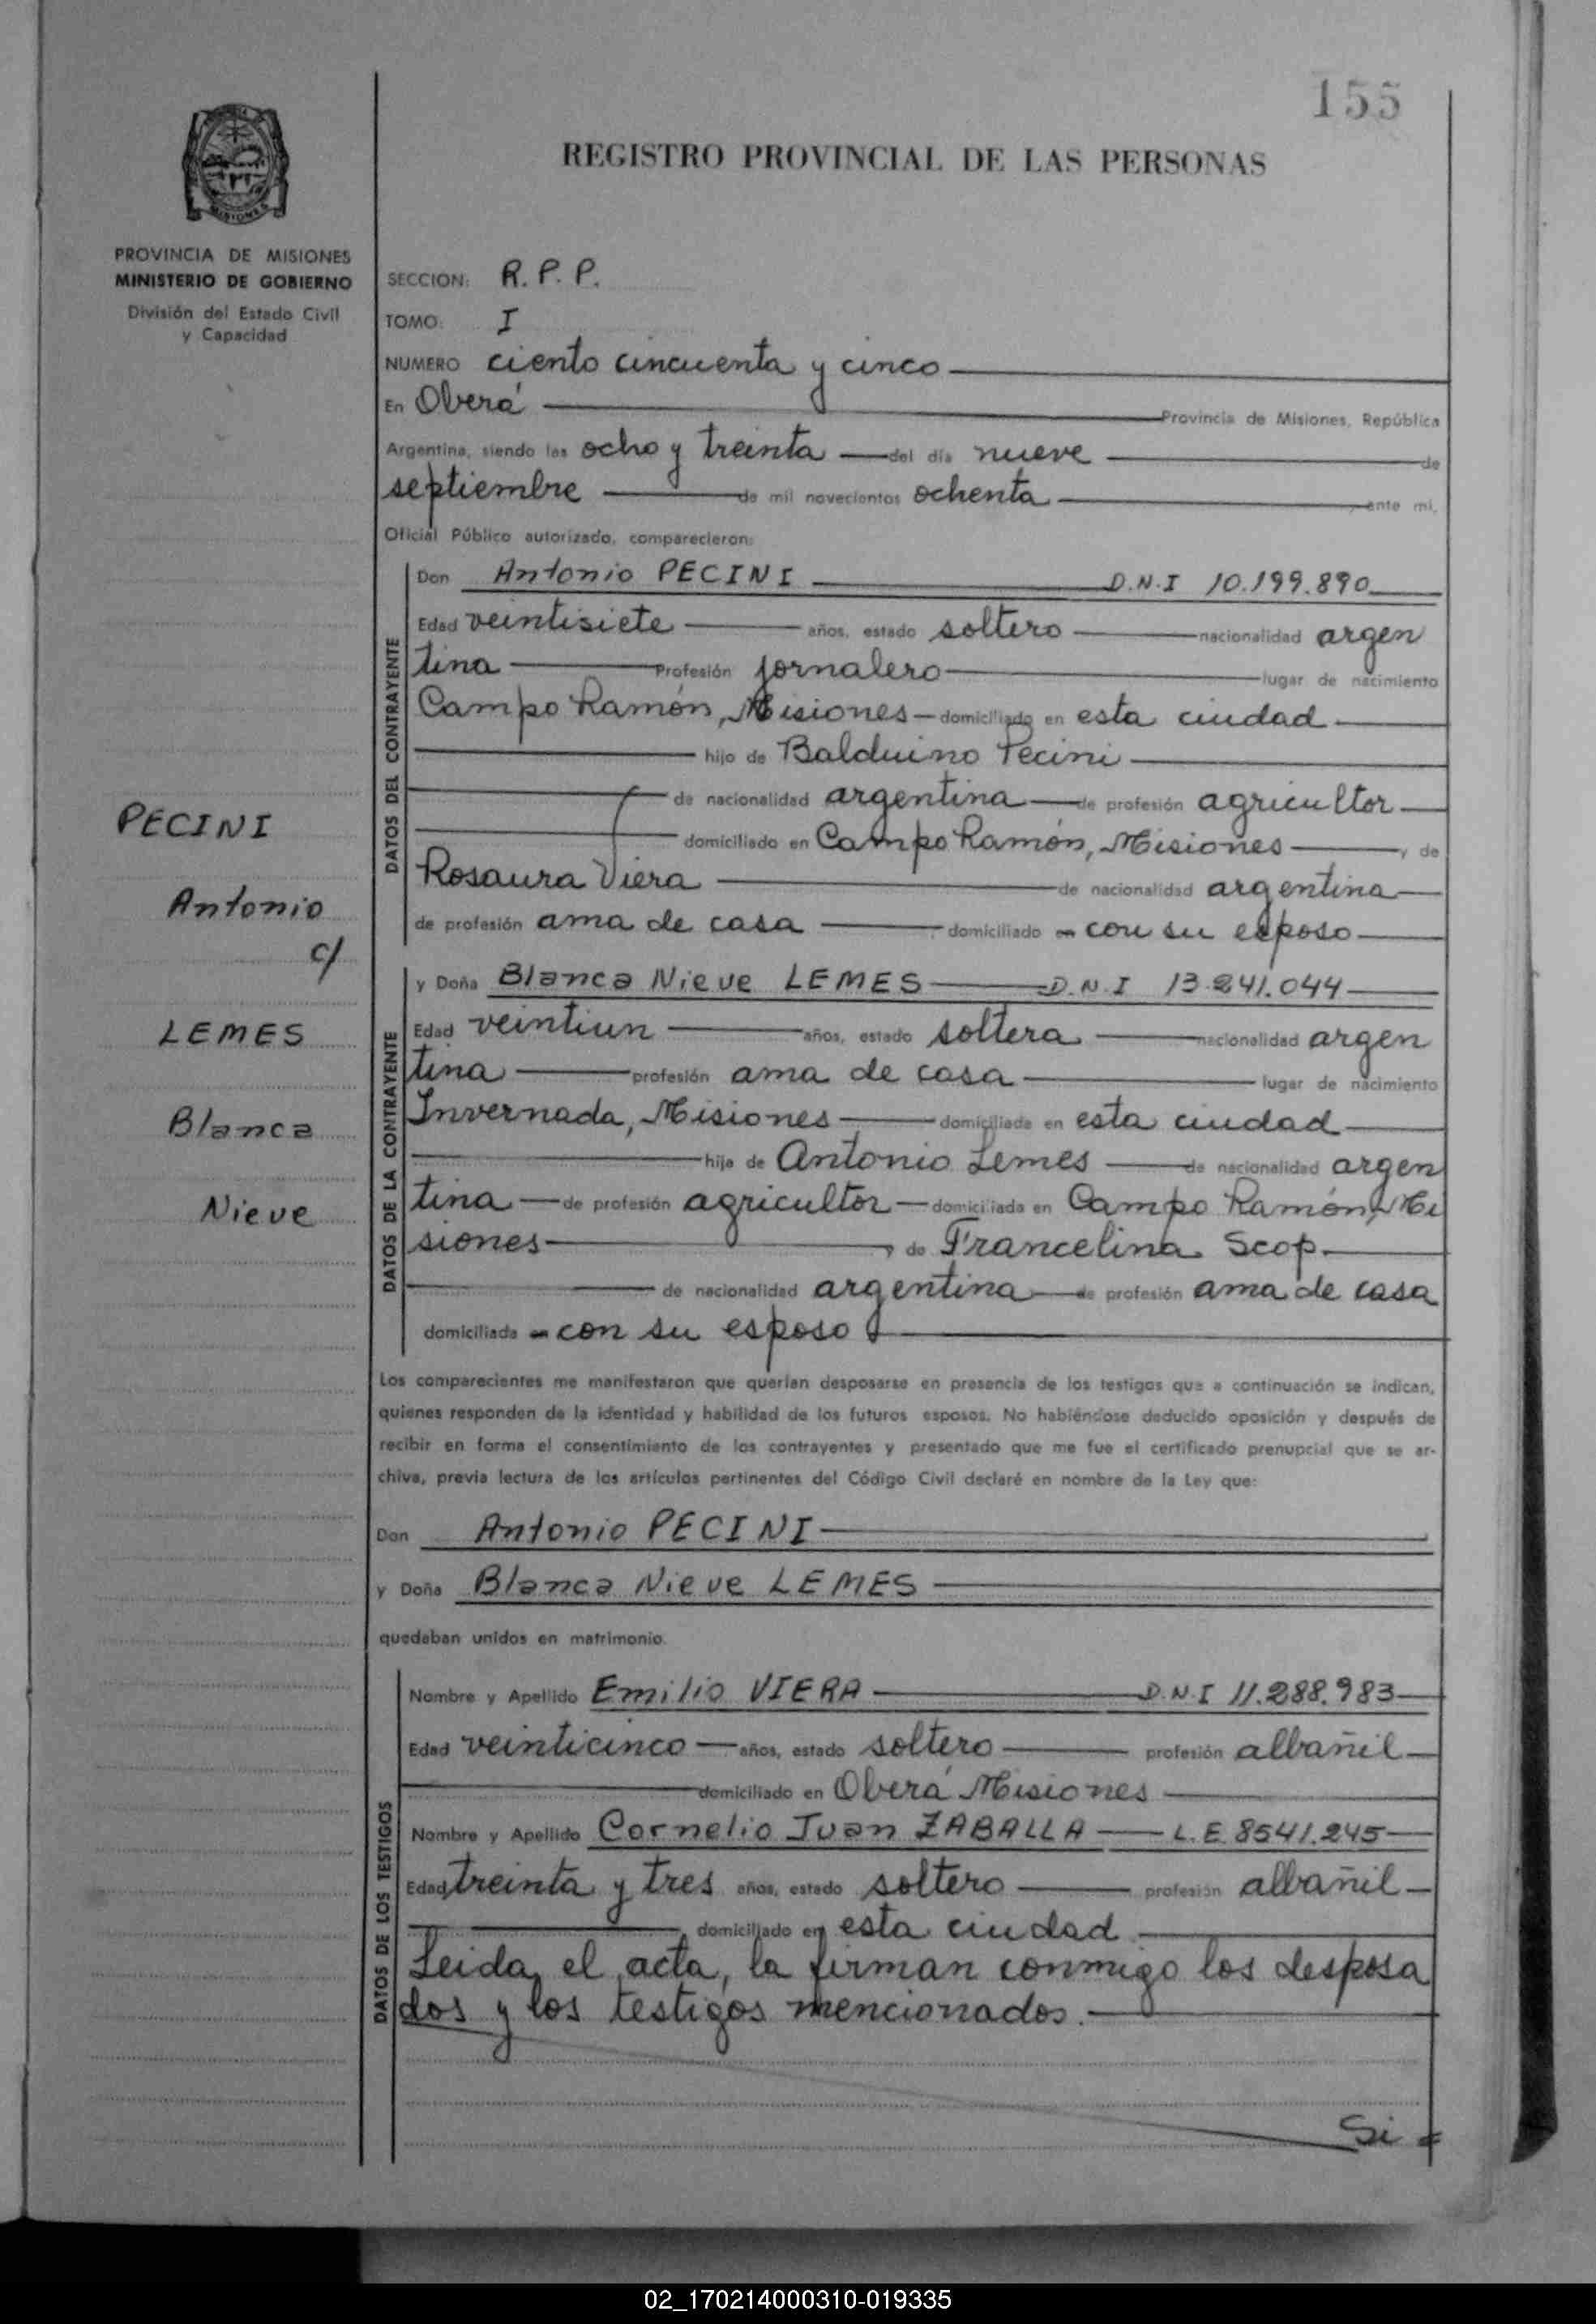 155
REGISTRO PROVINCIAL DE LAS PERSONAS
MISIONES
PROVINCIA DE MISIONES
MINISTERIO DE GOBIERNO
División del Estado Civil
y Capacidad
PECINI
Antonio
c/
LEMES
Blanca
Nieve
SECCION: R. P. P.
TOMO: I
NUMERO ciento cincuenta y cinco
En Oberá Provincia de Misiones, República
Argentina, siendo las ocho y treinta del día nueve de
septiembre de mil novecientos ochenta ante mi,
Oficial Público autorizado, comparecieron:
DATOS DEL CONTRAYENTE
Don Antonio PECINI D.N.I 10.199.890
Edad veintisiete años, estado soltero nacionalidad argen
tina Profesión jornalero lugar de nacimiento
Campo Ramón, Misiones domiciliado en esta ciudad
hijo de Balduino Pecini
de nacionalidad argentina de profesión agricultor
domiciliado en Campo Ramón, Misiones y de
Rosaura Viera de nacionalidad argentina
de profesión ama de casa domiciliado con su esposo
DATOS DE LA CONTRAYENTE
y Doña Blanca Nieve LEMES D.N.I 13.241.044
Edad veintiun años, estado soltera nacionalidad argen
tina profesión ama de casa lugar de nacimiento
Invernada, Misiones domiciliada en esta ciudad
hija de Antonio Lemes de nacionalidad argen
tina de profesión agricultor domiciliada en Campo Ramón, Mi
siones y de Francelina Scop
de nacionalidad argentina de profesión ama de casa
domiciliada con su esposo
Los comparecientes me manifestaron que querían desposarse en presencia de los testigos que a continuación se indican,
quienes responden de la identidad y habilidad de los futuros esposos. No habiéndose deducido oposición y después de
recibir en forma el consentimiento de los contrayentes y presentado que me fue el certificado prenupcial que se ar-
chiva, previa lectura de los artículos pertinentes del Código Civil declaré en nombre de la Ley que:
Don Antonio PECINI
y Doña Blanca Nieve LEMES
quedaban unidos en matrimonio.
DATOS DE LOS TESTIGOS
Nombre y Apellido Emilio VIERA D.N.I 11.288.983
Edad veinticinco años, estado soltero profesión albañil
domiciliado en Oberá Misiones
Nombre y Apellido Cornelio Juan ZABALLA L.E. 8541.245
Edad treinta y tres años, estado soltero profesión albañil
domiciliado en esta ciudad
Leida el acta, la firman conmigo los desposa
dos y los testigos mencionados.
Si
02_170214000310-019335